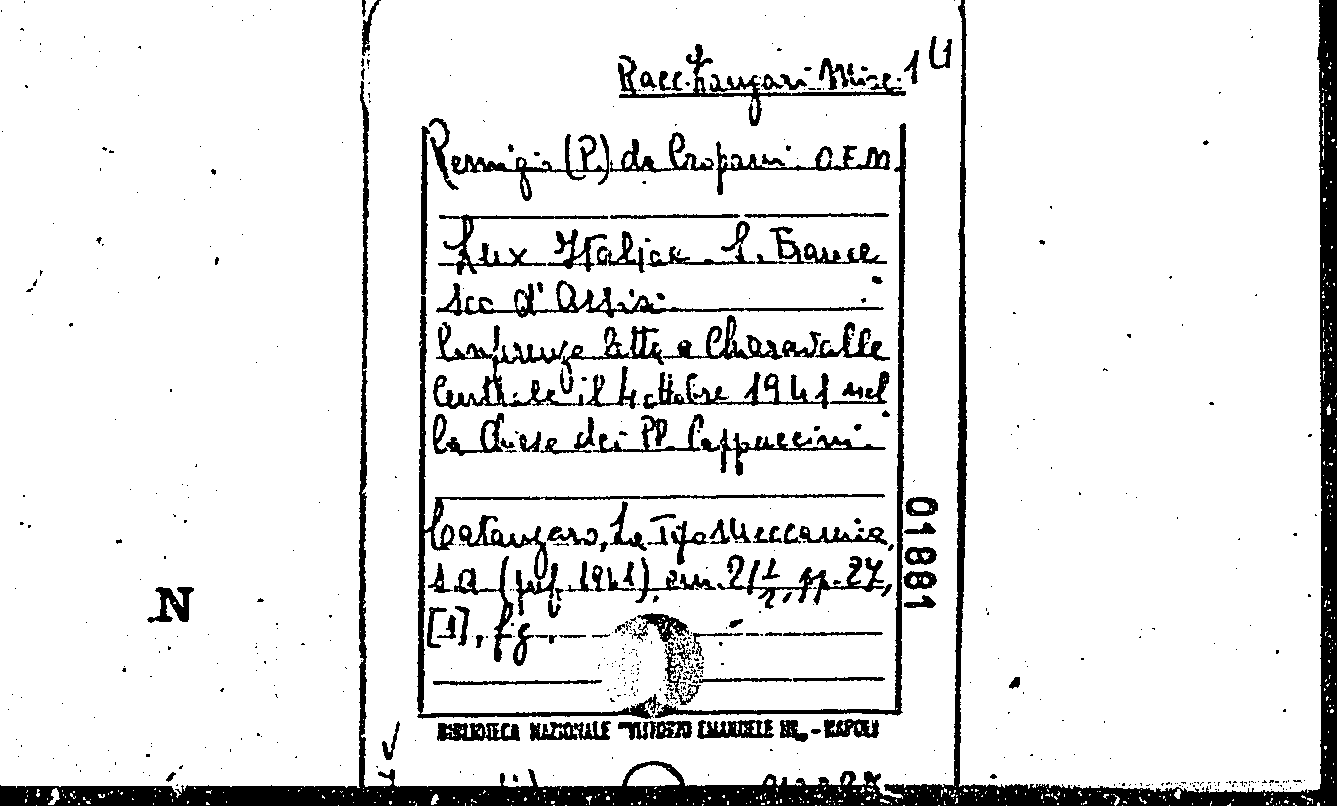 Racc. Zangari Misc. 1 (4
Remigio (P.) da Cropani. O.F.M.
Lux Italiae - S. France
sco d'Assisi
Conferenza letta a Chiaravalle
Centrale il 4 ottobre 1941 nel
la Chiesa dei PP. Cappuccini.
Catanzaro, La Tipomeccanica,
s.a (pref. 1941), cm. 21 1/2, pp. 27,
[1], fg.
01881
N
BIBLIOTECA NAZIONALE "VITTORIO EMANUELE III„ - NAPOLI